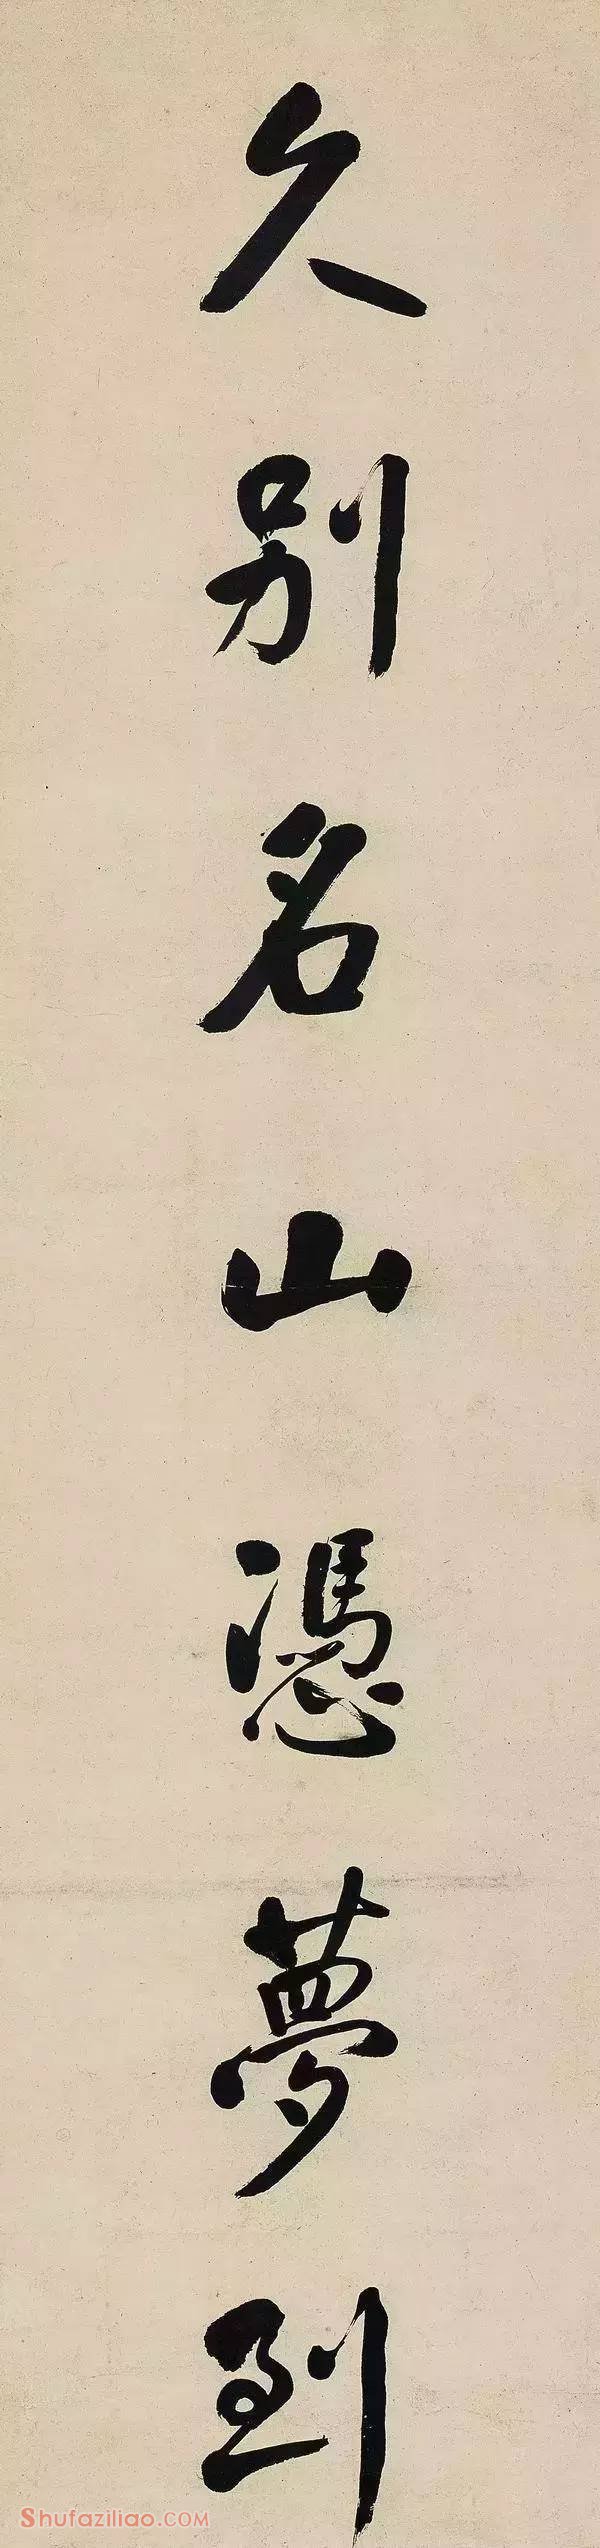 久别名山憑夢到
Shufaziliao.COM